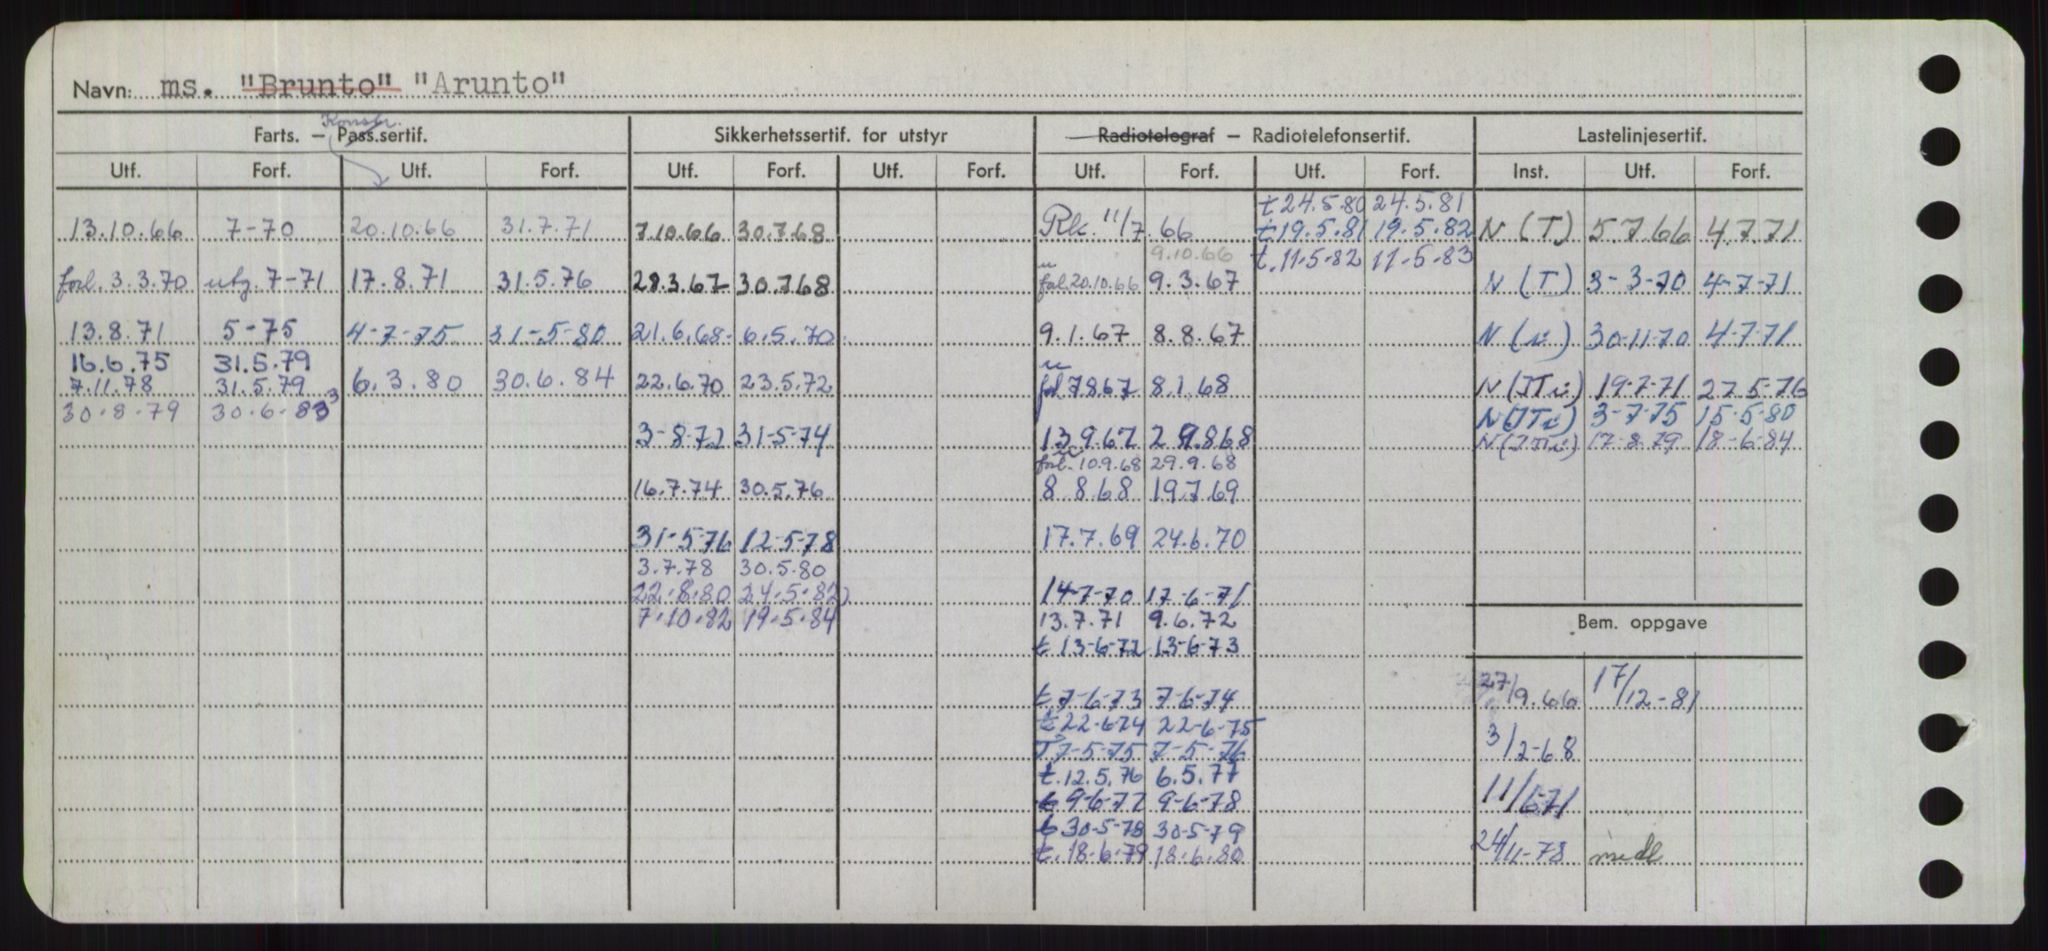 Navn: ms. "Brunto" "Arunto"
Konstr.
Farts. – Pass.sertif. Sikkerhetssertif. for utstyr Radiotelegraf – Radiotelefonsertif. Lastelinjesertif.
Utf. Forf. Utf. Forf. Utf. Forf. Utf. Forf. Utf. Forf. Utf. Forf. Inst. Utf. Forf.
t 24.5.80 24.5.81
13.10.66 7-70 20.10.66 31.7.71 7.10.66 30.7.68 Rk. 11/7.66 t 19.5.81 19.5.82 N (T) 5.7.66 4.7.71
9.10.66 t. 11-5-82 11-5-83
forl. 3.3.70 utg. 7-71 17.8.71 31.5.76 28.3.67 30.7.68 20.10.66 9.3.67 N (T) 3-3-70 4-7-71
13.8.71 5-75 4-7-75 31-5-80 21.6.68 6.5.70 9.1.67 8.8.67 N 30-11-70 4-7-71
16.6.75 31.5.79
7.11.78 31.5.79 6.3.80 30.6.84 22.6.70 23.5.72 7867 8.1.68 N 19-7-71 27-5-76
30-8-79 30-6-83 3 N 3-7-75 15-5-80
3-8-72 31-5-74 13 9.67 29.868 N 17-8-79 18-6-84
forl. 10.9.68 29.9.68
16.7.74 30.5.76 8 8.68 19.7.69
31-5-76 12-5-78 17.7.69 24.6.70
3.7.78 30.5.80
22.8.80 24.5.82 14-7-70 17-6-71
7.10.82 19.5.84 13.7.71 9.6.72 Bem. oppgave
t 13-6-72 13-6-73
t. 7-6-73 7-6-74 27/9.66 17/12-81
t 22-6-74 22-6-75
T. 7-5-75 7-5-76 3/2-68
t. 12.5.76 6.5.77
t 9-6-77 9-6-78 11/671
t 30-5-78 30-5-79
t. 18-6-79 18.6.80 24/11-78